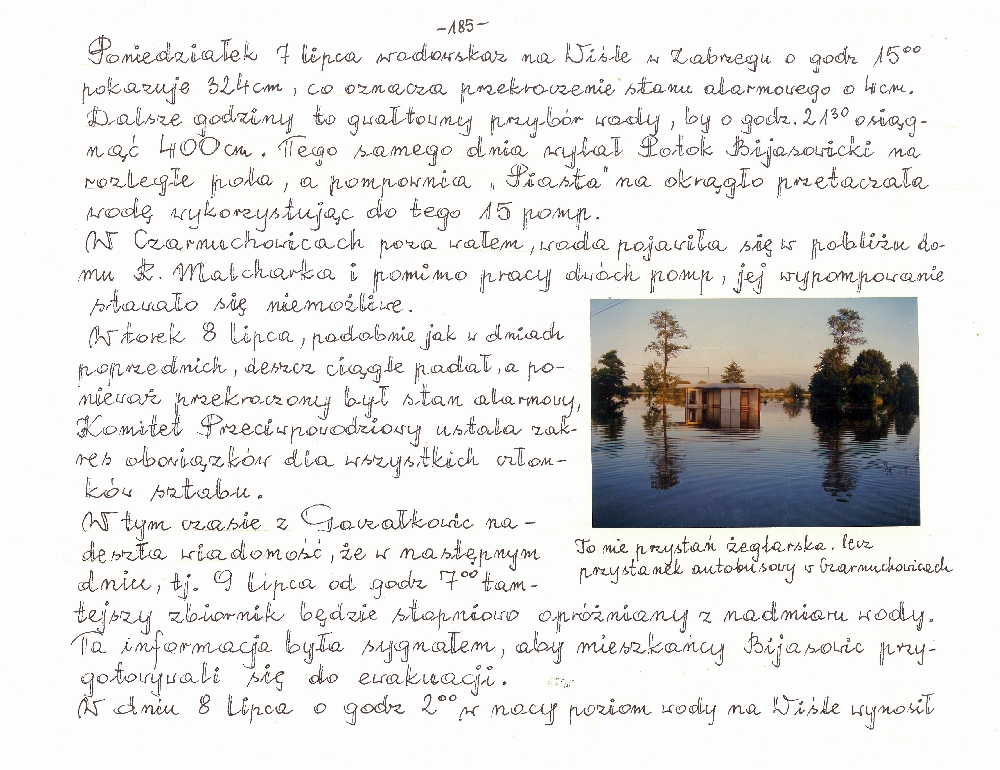 -185-
Poniedziałek 7 lipca wodowskaz na Wiśle w Zabrzegu o godz 15⁰⁰
pokazuje 324cm, co oznacza przekroczenie stanu alarmowego o 4cm.
Dalsze godziny to gwałtowny przybór wody, by o godz. 21³⁰ osiąg-
nąć 400cm. Tego samego dnia wylał Potok Bijasowicki na
rozległe pola, a pompownia „Piasta" na okrągło przetaczała
wodę wykorzystując do tego 15 pomp.
W Czarnuchowicach poza wałem, woda pojawiła się w pobliżu do-
mu R. Malcharka i pomimo pracy dwóch pomp, jej wypompowanie
stawało się niemożliwe.
Wtorek 8 lipca, podobnie jak w dniach
poprzednich, deszcz ciągle padał, a po-
nieważ przekroczony był stan alarmowy,
Komitet Przeciwpowodziowy ustala zak-
res obowiązków dla wszystkich człon-
ków sztabu.
W tym czasie z Goczałkowic na-
deszła wiadomość, że w następnym
dniu, tj. 9 lipca od godz 7⁰⁰ tam-
tejszy zbiornik będzie stopniowo opróżniany z nadmiaru wody.
Ta informacja była sygnałem, aby mieszkańcy Bijasowic przy-
gotowywali się do ewakuacji.
W dniu 8 lipca o godz 2⁰⁰ w nocy poziom wody na Wiśle wynosił
To nie przystań żeglarska, lecz
przystanek autobusowy w Czarnuchowicach